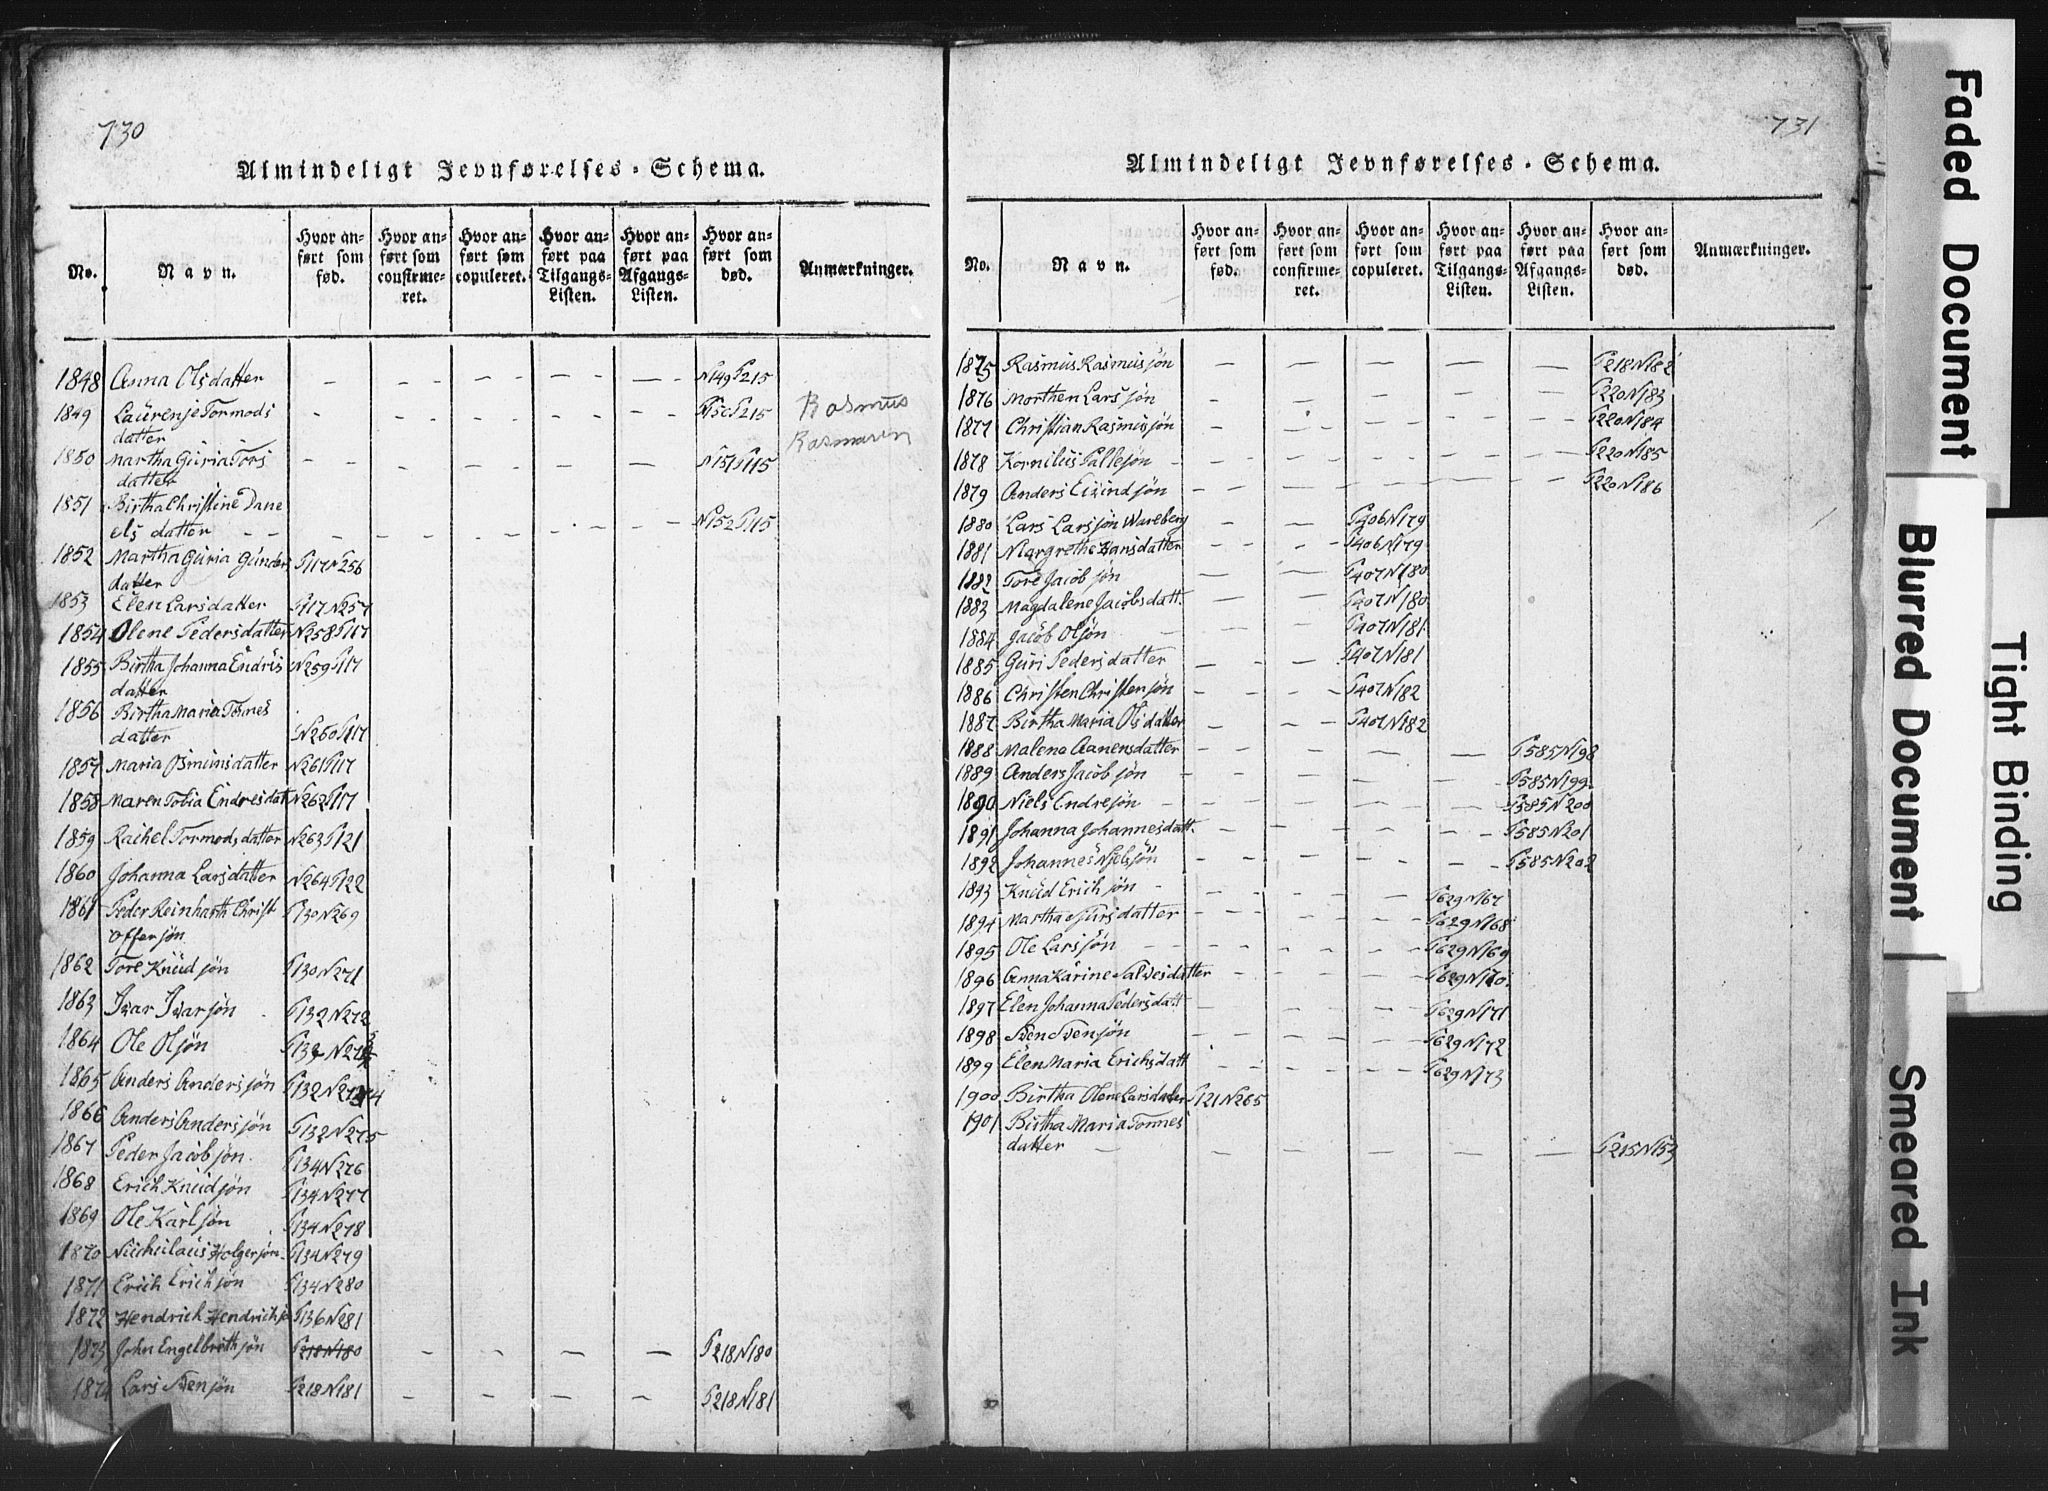 730
Almindeligt Jevnførelses-Schema.
No. Navn. Hvor anført som fød. Hvor anført som confirmeret. Hvor anført søm copuleret. Hvor anført paa Tilgangs-Listen. Hvor anført paa Afgangs-Listen. Hvor anført som død. Anmærkninger.
1848 Anna Olsdatter - - - - - - - - - N149P215
1849 Laurense Tormods P215 Rasmus
datter
1850 Martha Guria Tors - - - - - - - - - N151P115
datter
1851 Birtha Christine Dane
els datter - - - - - - - - - N152P115
1852 Martha Guria Gunders P117N256
datter
1853 Elen Larsdatter P117N257
1854 Olene Pedersdatter N258P117
1855 Birtha Johanna Endris N259P117
datter
1856 Birtha Maria Tønnes
datter N260P117
1857 Maria Osmunsdatter N261P117
1858 Maren Tobia Endresdat N262P117
1859 Rachel Tormodsdatter N263P121
1860 Johanna Larsdatter N264P122
1861 Peder Reinharth Christ P130N269
offersøn
1862 Tore Knudsøn P130N271
1863 Ivar Ivarsøn P132N272
1864 Ole Olsøn
1865 Anders Andersøn
1866 Anders Andersøn P132N275
1867 Peder Jacobsøn P134N276
1868 Erich Knudsøn P134N277
1869 Ole Karlsøn P134N278
1870 Nicholaus Holgersøn P134N279
1871 Erich Erichsøn P134N280
1872 Hendrich Hendrichsø P136N281
1873 John Engelbrethsøn P218N180 - - - - P218N180
1874 Lars Svensøn P218N181 - - - - P218N181
731
Almindeligt Jevnførelses-Schema.
No. Navn. Hvor anført som fød. Hvor anført som confirmeret. Hvor anført som copuleret. Hvor anført paa Tilgangs-Listen. Hvor anført paa Afgangs-Listen. Hvor anført som død. Anmærkninger.
1875 Rasmus Rasmussøn - - - - - P218N182
1876 Morthen Larssøn - - - - - P220N183
1877 Christian Rasmussøn - - - - - P220N184
1878 Kornilius Pallesøn - - - - - P220N185
1879 Anders Eivindsøn - - - - - P220N186
1880 Lars Larssøn Wareberg - - P406N179
1881 Margrethe Hansdatter - - P406N179
1882 Tore Jacobsøn - - P407N180
1883 Magdalene Jacobsdatt. - - P407N180
1884 Jacob Olsøn - - P407N181
1885 Guri Pedersdatter - - P407N181
1886 Christen Christensøn - - P407N182
1887 Birtha Maria Olsdatter - - P407N182
1888 Malena Aanensdatter - - - - P585N198
1889 Anders Jacobsøn - - - - P585N199
1890 Niels Endresøn - - - - P585N200
1891 Johanna Johannesdatt. - - - - P585N201
1892 Johannes Njelssøn - - - - P585N202
1893 Knud Erichsøn - - - P629N167
1894 Martha - - - P629N168
1895 Ole Larssøn - - - P629N169
1896 Anna Karine Salvesdatter - - - P629N170
1897 Elen Johanna Pedersdatt - - - P629N171
1898 Sven Svensøn - - - P629N172
1899 Elen Maria Erichsdatt - - - P629N173
1900 Birtha Olene Larsdatter P121N265
1901 Birtha Maria Tonnes
datter - - - - - - P215N153
Faded Document
Tight Binding
Blurred Document
Smeared Ink